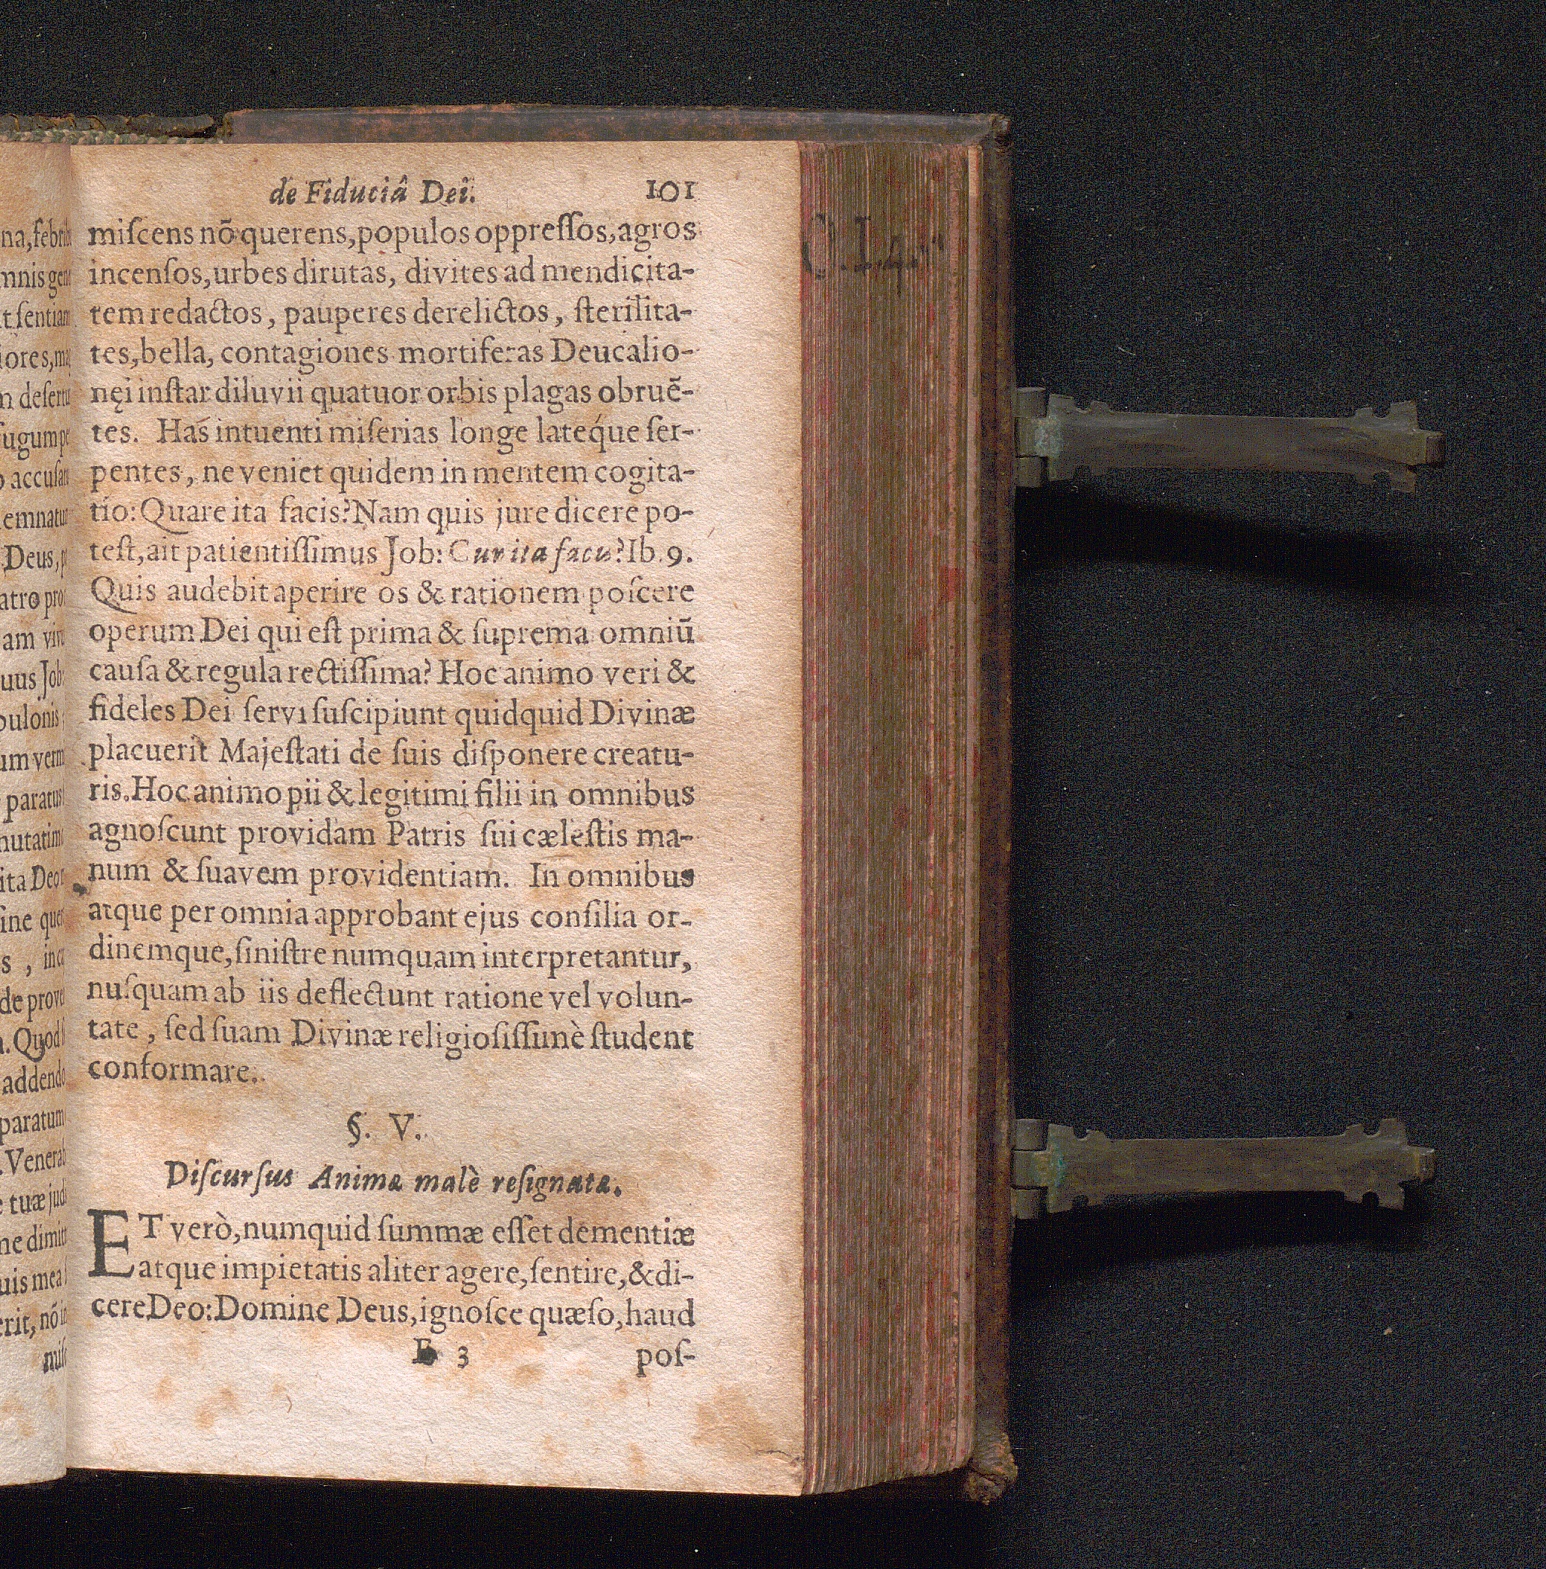 de Fiduciâ Dei. 101
miſcens nō querens, populos oppreſſos, agros
incenſos, urbes dirutas, divites ad mendicita-
tem redactos, pauperes derelictos, ſterilita-
tes, bella, contagiones mortiferas Deucalio-
nęi inſtar diluvii quatuor orbis plagas obruē-
tes. Has intuenti miſerias longe latéque ſer-
pentes, ne veniet quidem in mentem cogita-
tio: Quare ita facis? Nam quis jure dicere po-
teſt, ait patientiſſimus Job: Cur ita facis? Ib. 9.
Quis audebit aperire os & rationem poſcere
operum Dei qui eſt prima & ſuprema omniū
cauſa & regula rectiſſima? Hoc animo veri &
fideles Dei ſervi ſuſcipiunt quidquid Divinæ
placuerit Majeſtati de ſuis diſponere creatu-
ris. Hoc animo pii & legitimi filii in omnibus
agnoſcunt providam Patris ſui cæleſtis ma-
num & ſuavem providentiam. In omnibus
atque per omnia approbant ejus conſilia or-
dinemque, ſiniſtre numquam interpretantur,
nuſquam ab iis deflectunt ratione vel volun-
tate, ſed ſuam Divinæ religioſiſſimè ſtudent
conformare.
§. V.
Diſcurſus Animæ malè reſignatæ.
ET verò, numquid ſummæ eſſet dementiæ
atque impietatis aliter agere, ſentire, & di-
cere Deo: Domine Deus, ignoſce quæſo, haud
E 3 poſ-